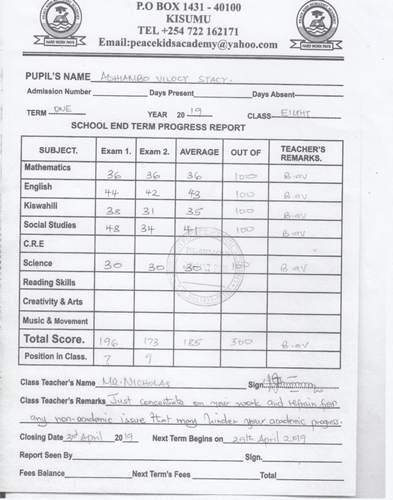 P.O BOX 1431 - 40100
KISUMU
TEL +254 722 162171
Email:peacekidsacademy@yahoo.com
HARD WORK PAYS HARD WORK PAYS
PUPIL'S NAME ADHIAMBO VILOCY STACY.
Admission Number Days Present Days Absent
TERM ONE YEAR 2019 CLASS EIGHT
SCHOOL END TERM PROGRESS REPORT
SUBJECT. Exam 1. Exam 2. AVERAGE OUT OF TEACHER'S REMARKS.
Mathematics 36 36 36 100 B.av
English 44 42 43 100 B.av
Kiswahili 38 31 35 100 B.av
Social Studies 48 34 41 100 B.av
C.R.E
Science 30 30 30 100 B.av
Reading Skills
Creativity & Arts
Music & Movement
Total Score. 196 173 185 500 B.av
Position in Class. 7 9
Class Teacher's Name MR. NICHOLAS Sign
Class Teacher's Remarks Just concentrate on your work and refrain from
any non-academic issue that may hinder your academic progress.
Closing Date 3rd April 2019 Next Term Begins on 29th April 2019
Report Seen By Sign.
Fees Balance Next Term's Fees Total